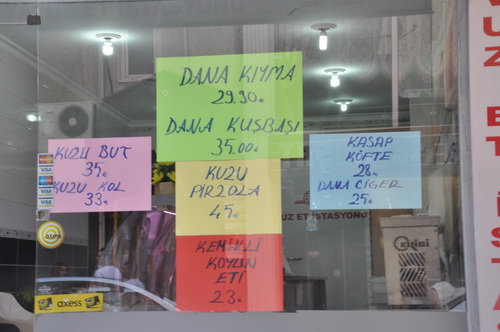 DANA KIYMA
29.90.
DANA KUŞBAŞI
35.00.
KUZU BUT
35.
KUZU KOL
33.
KUZU
PİRZOLA
45.
KASAP
KÖFTE
28.
DANA CİGER
25.
KEMİKLİ
KOYUN
ETİ
23.
UZ ET İSTASYONU
VISA
VISA
axess
axess